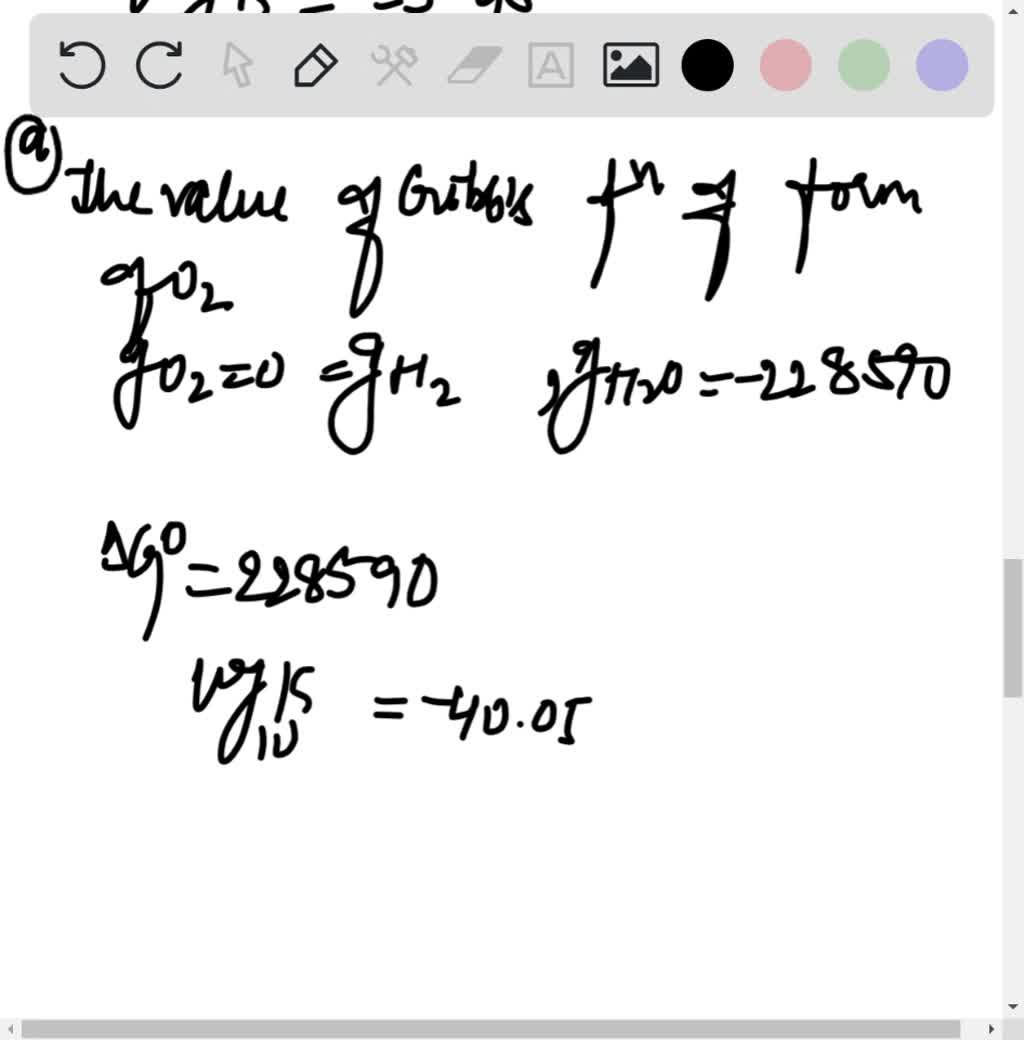 ⓐ The value of Gibb's fⁿ of form
g O₂
g O₂ = 0 = g H₂ , g H₂O = -228590
ΔG⁰ = 228590
log₁₀ K = -40.05